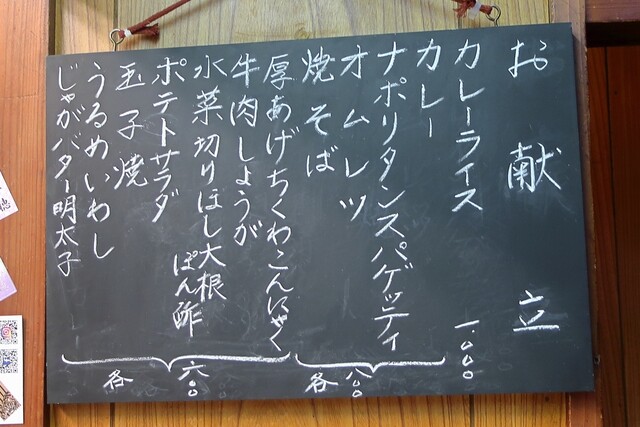 お献立
カレーライス 一、〇〇〇
カレー
ナポリタンスパゲッティ
オムレツ
焼そば
各 八〇〇
厚あげちくわこんにゃく
牛肉しょうが
水菜切りほし大根
ぽん酢
ポテトサラダ
玉子焼
うるめいわし
じゃがバター明太子
各 六〇〇